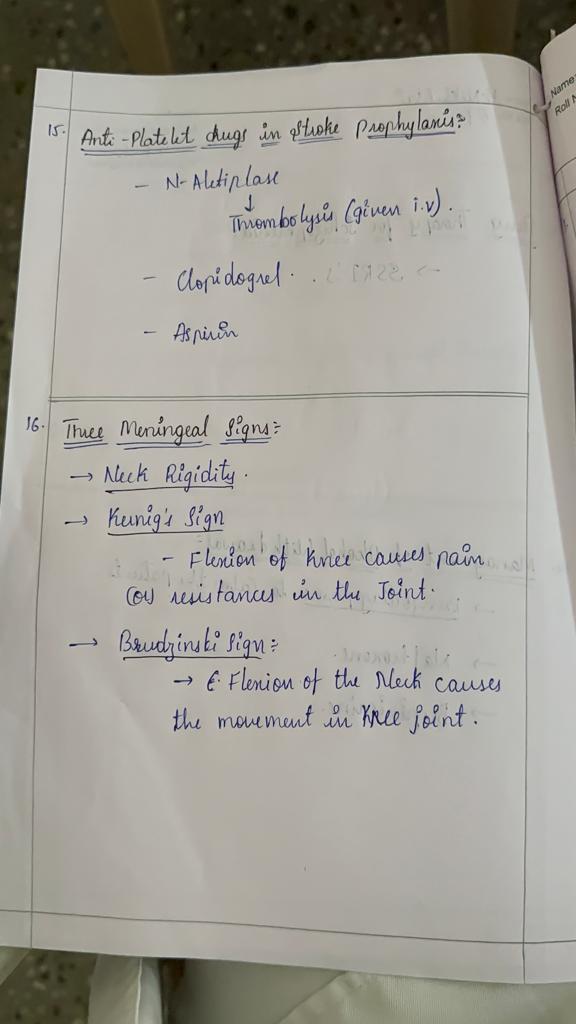 15. Anti-Platelet drugs in Stroke Prophylaxis:
- N-Altiplase
↓
Thrombolysis (given i.v).
- Clopidogrel.
- Aspirin
16. Three Meningeal Signs:-
→ Neck Rigidity.
→ Kernig's Sign
- Flexion of Knee causes pain
(or) resistances in the Joint.
→ Brudzinski Sign:-
→ Flexion of the Neck causes
the movement in Knee joint.
Name
Roll N